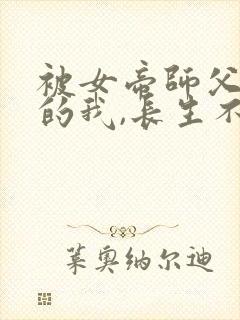 被女帝師父
的我,長生不
莱奧纳尔迪